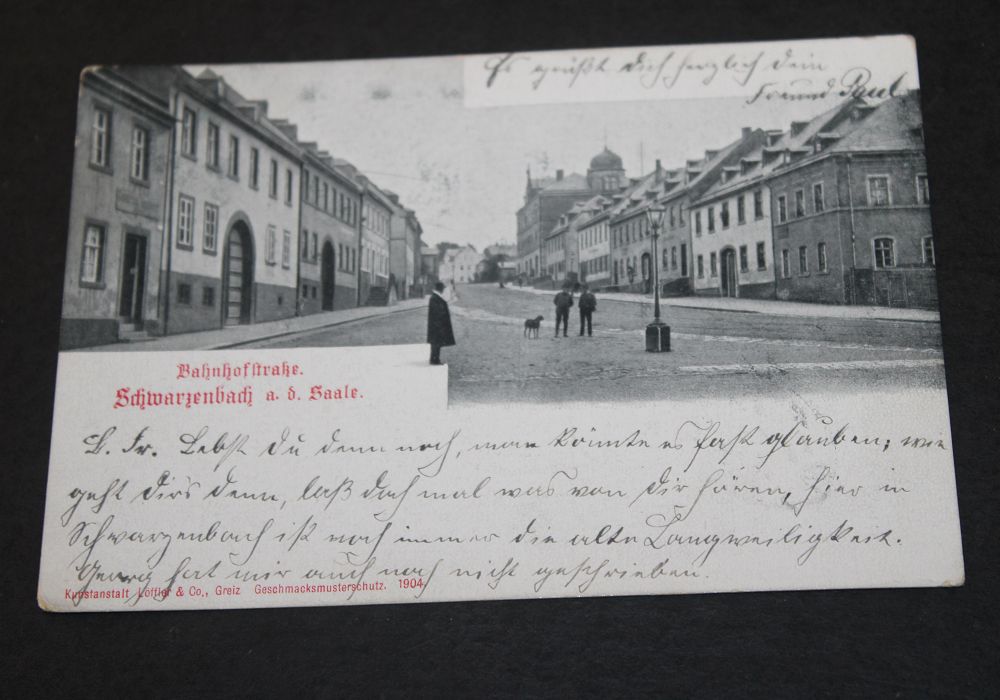 Es grüßt dich herzlich dein
Freund Paul
Bahnhofstraße.
Schwarzenbach a. d. Saale.
L. Fr. Lebst du denn noch, man könnte es fast glauben; wie
geht dir's denn, laß doch mal was von dir hören, hier in
Schwarzenbach ist noch immer die alte Langweiligkeit.
Georg hat mir auch noch nicht geschrieben.
Kunstanstalt Löffler & Co., Greiz Geschmacksmusterschutz. 1904.